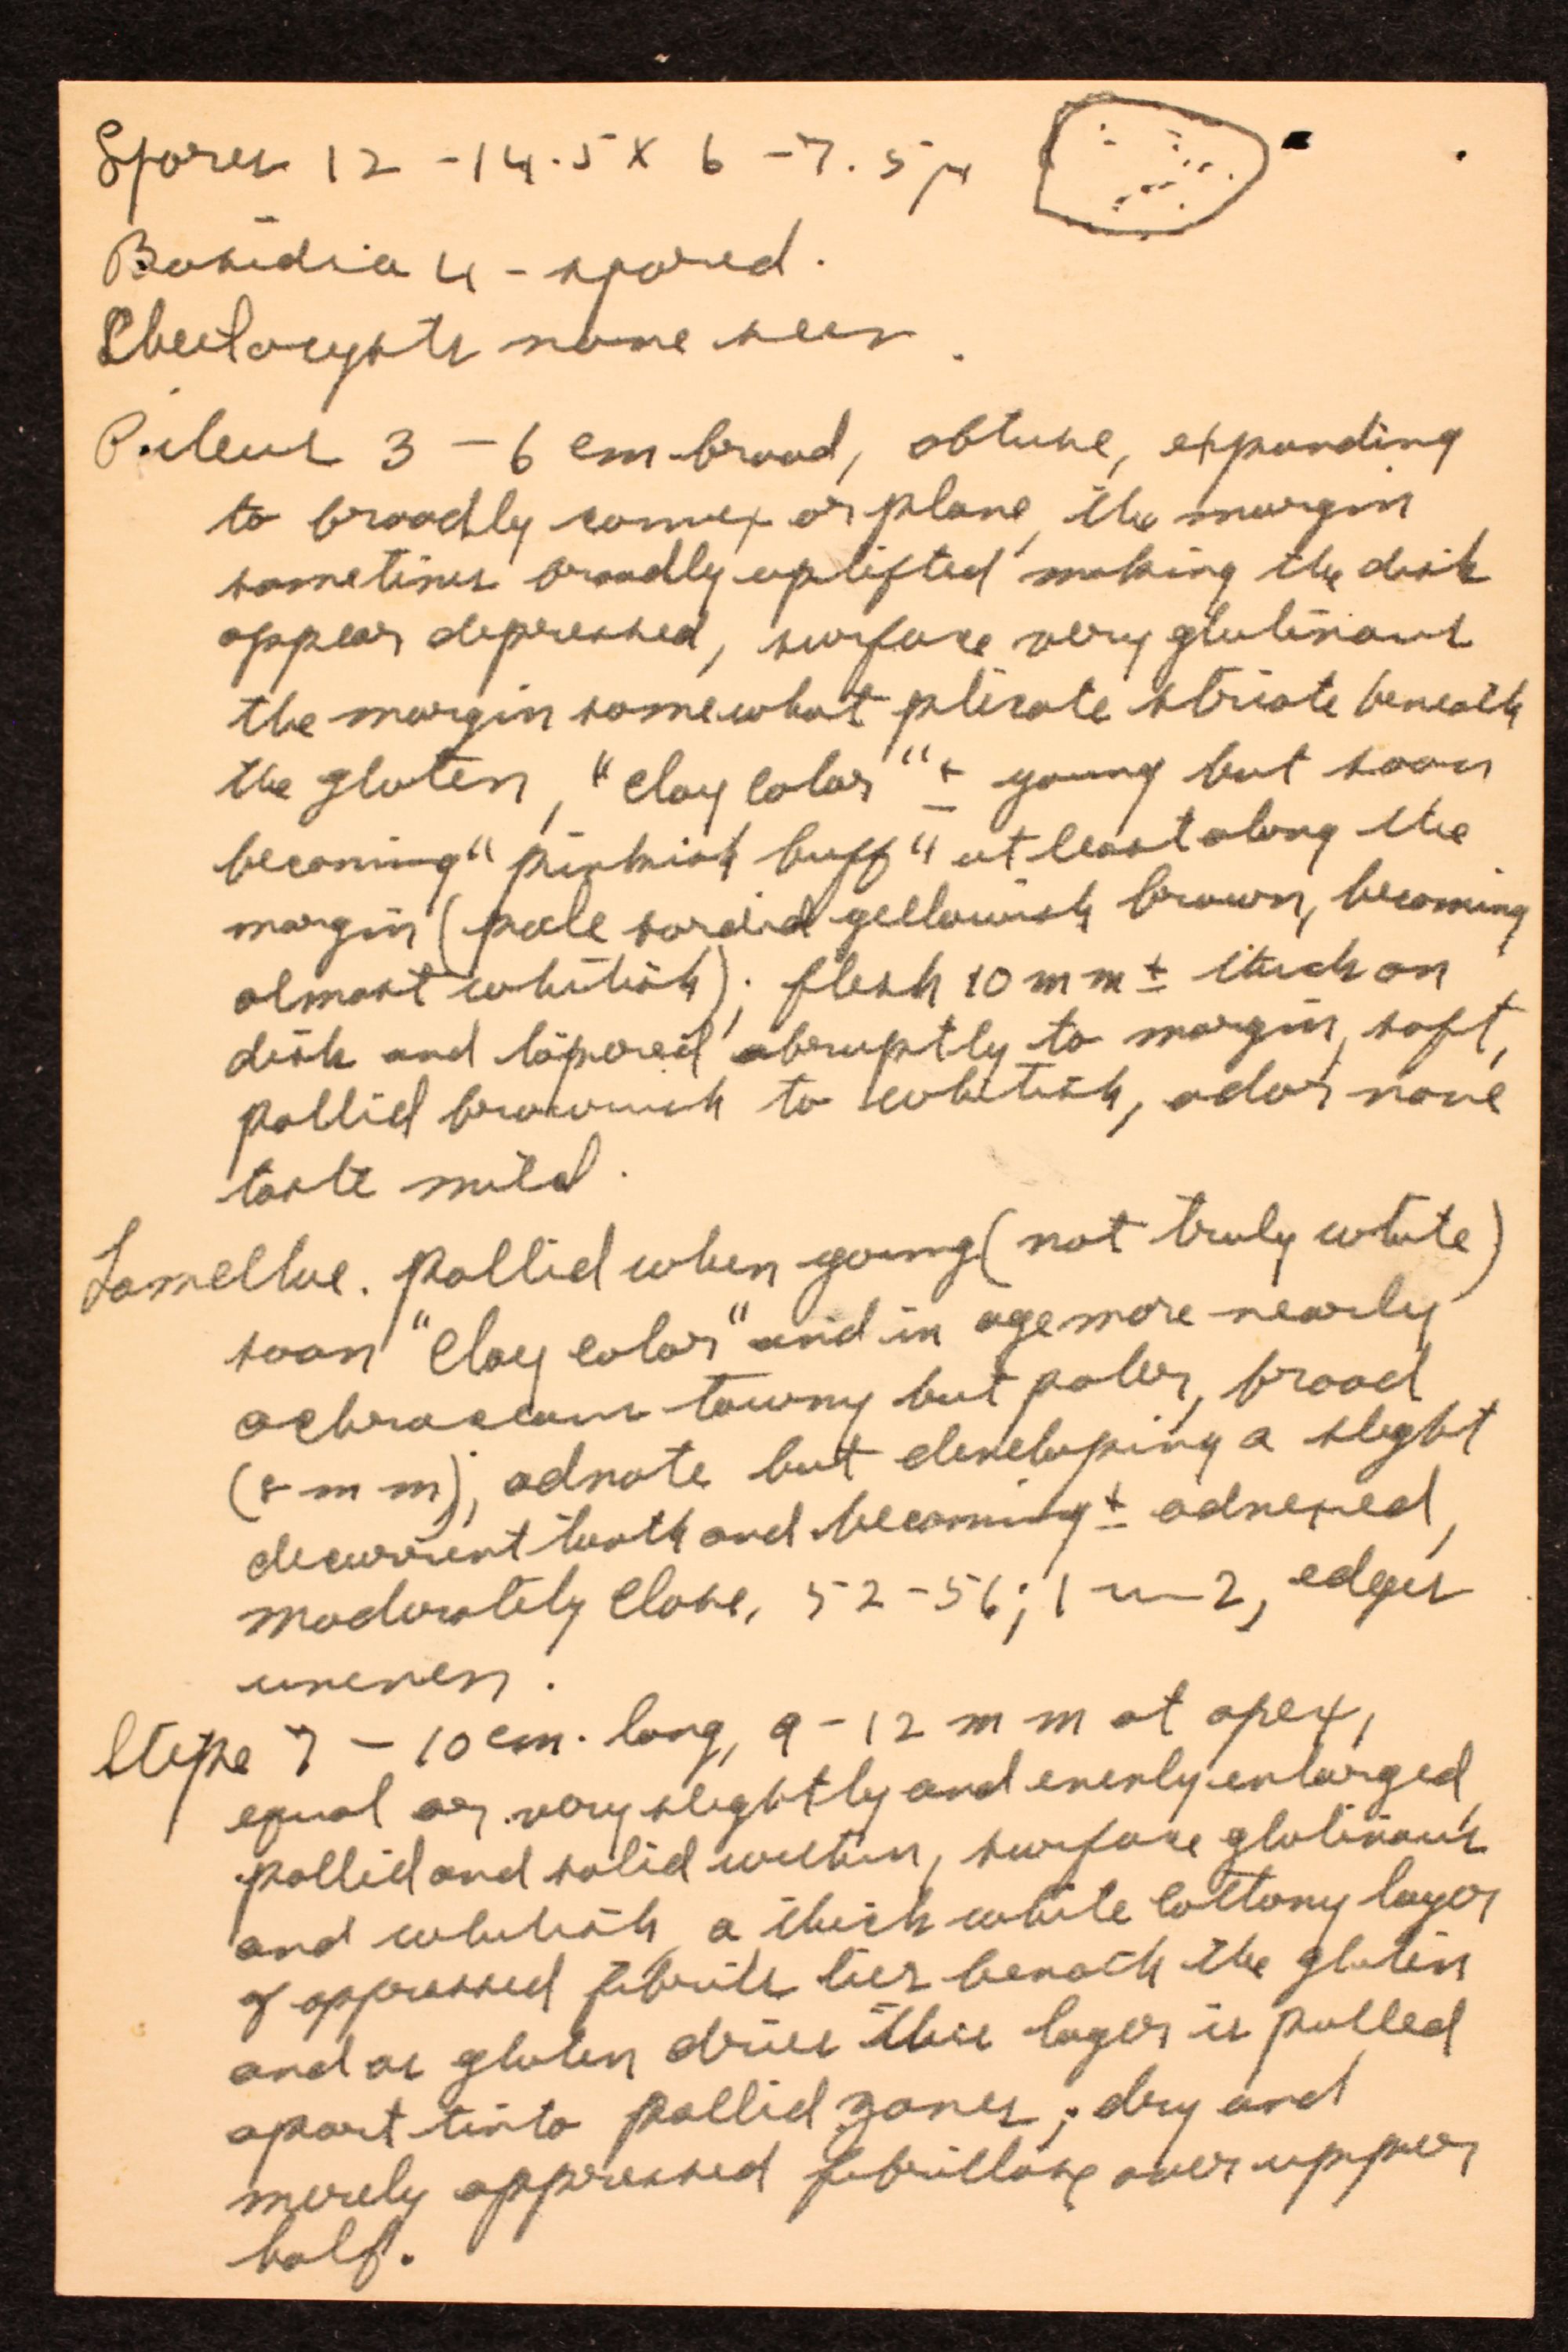 Spores 12 - 14.5 X 6 - 7.5 μ
Basidia 4 - spored.
Cheilocysts none seen.
Pileus 3 - 6 cm broad, obtuse, expanding
to broadly convex or plane, the margin
sometimes broadly uplifted making the disk
appear depressed, surface very glutinous
the margin somewhat plicate striate beneath
the gluten, "Clay Color" ± young but soon
becoming "pinkish buff" at least along the
margin (pale sordid yellowish brown, becoming
almost whitish); flesh 10 mm ± thick on
disk and tapered abruptly to margin, soft,
pallid brownish to whitish, odor none
taste mild.
Lamellae. pallid when young (not truly white)
soon "Clay Color" and in age more nearly
ochraceous tawny but paler, broad
(8 mm), adnate but developing a slight
decurrent tooth and becoming ± adnexed,
moderately close, 52-56; 1-2, edges
uneven.
Stipe 7 - 10 cm. long, 9 - 12 mm at apex,
equal or very slightly and evenly enlarged,
pallid and solid within, surface glutinous
and whitish, a thick white cottony layer
of appressed fibrils lies beneath the gluten
and as gluten dries this layer is pulled
apart into pallid zones; dry and
merely appressed fibrillose over upper
half.